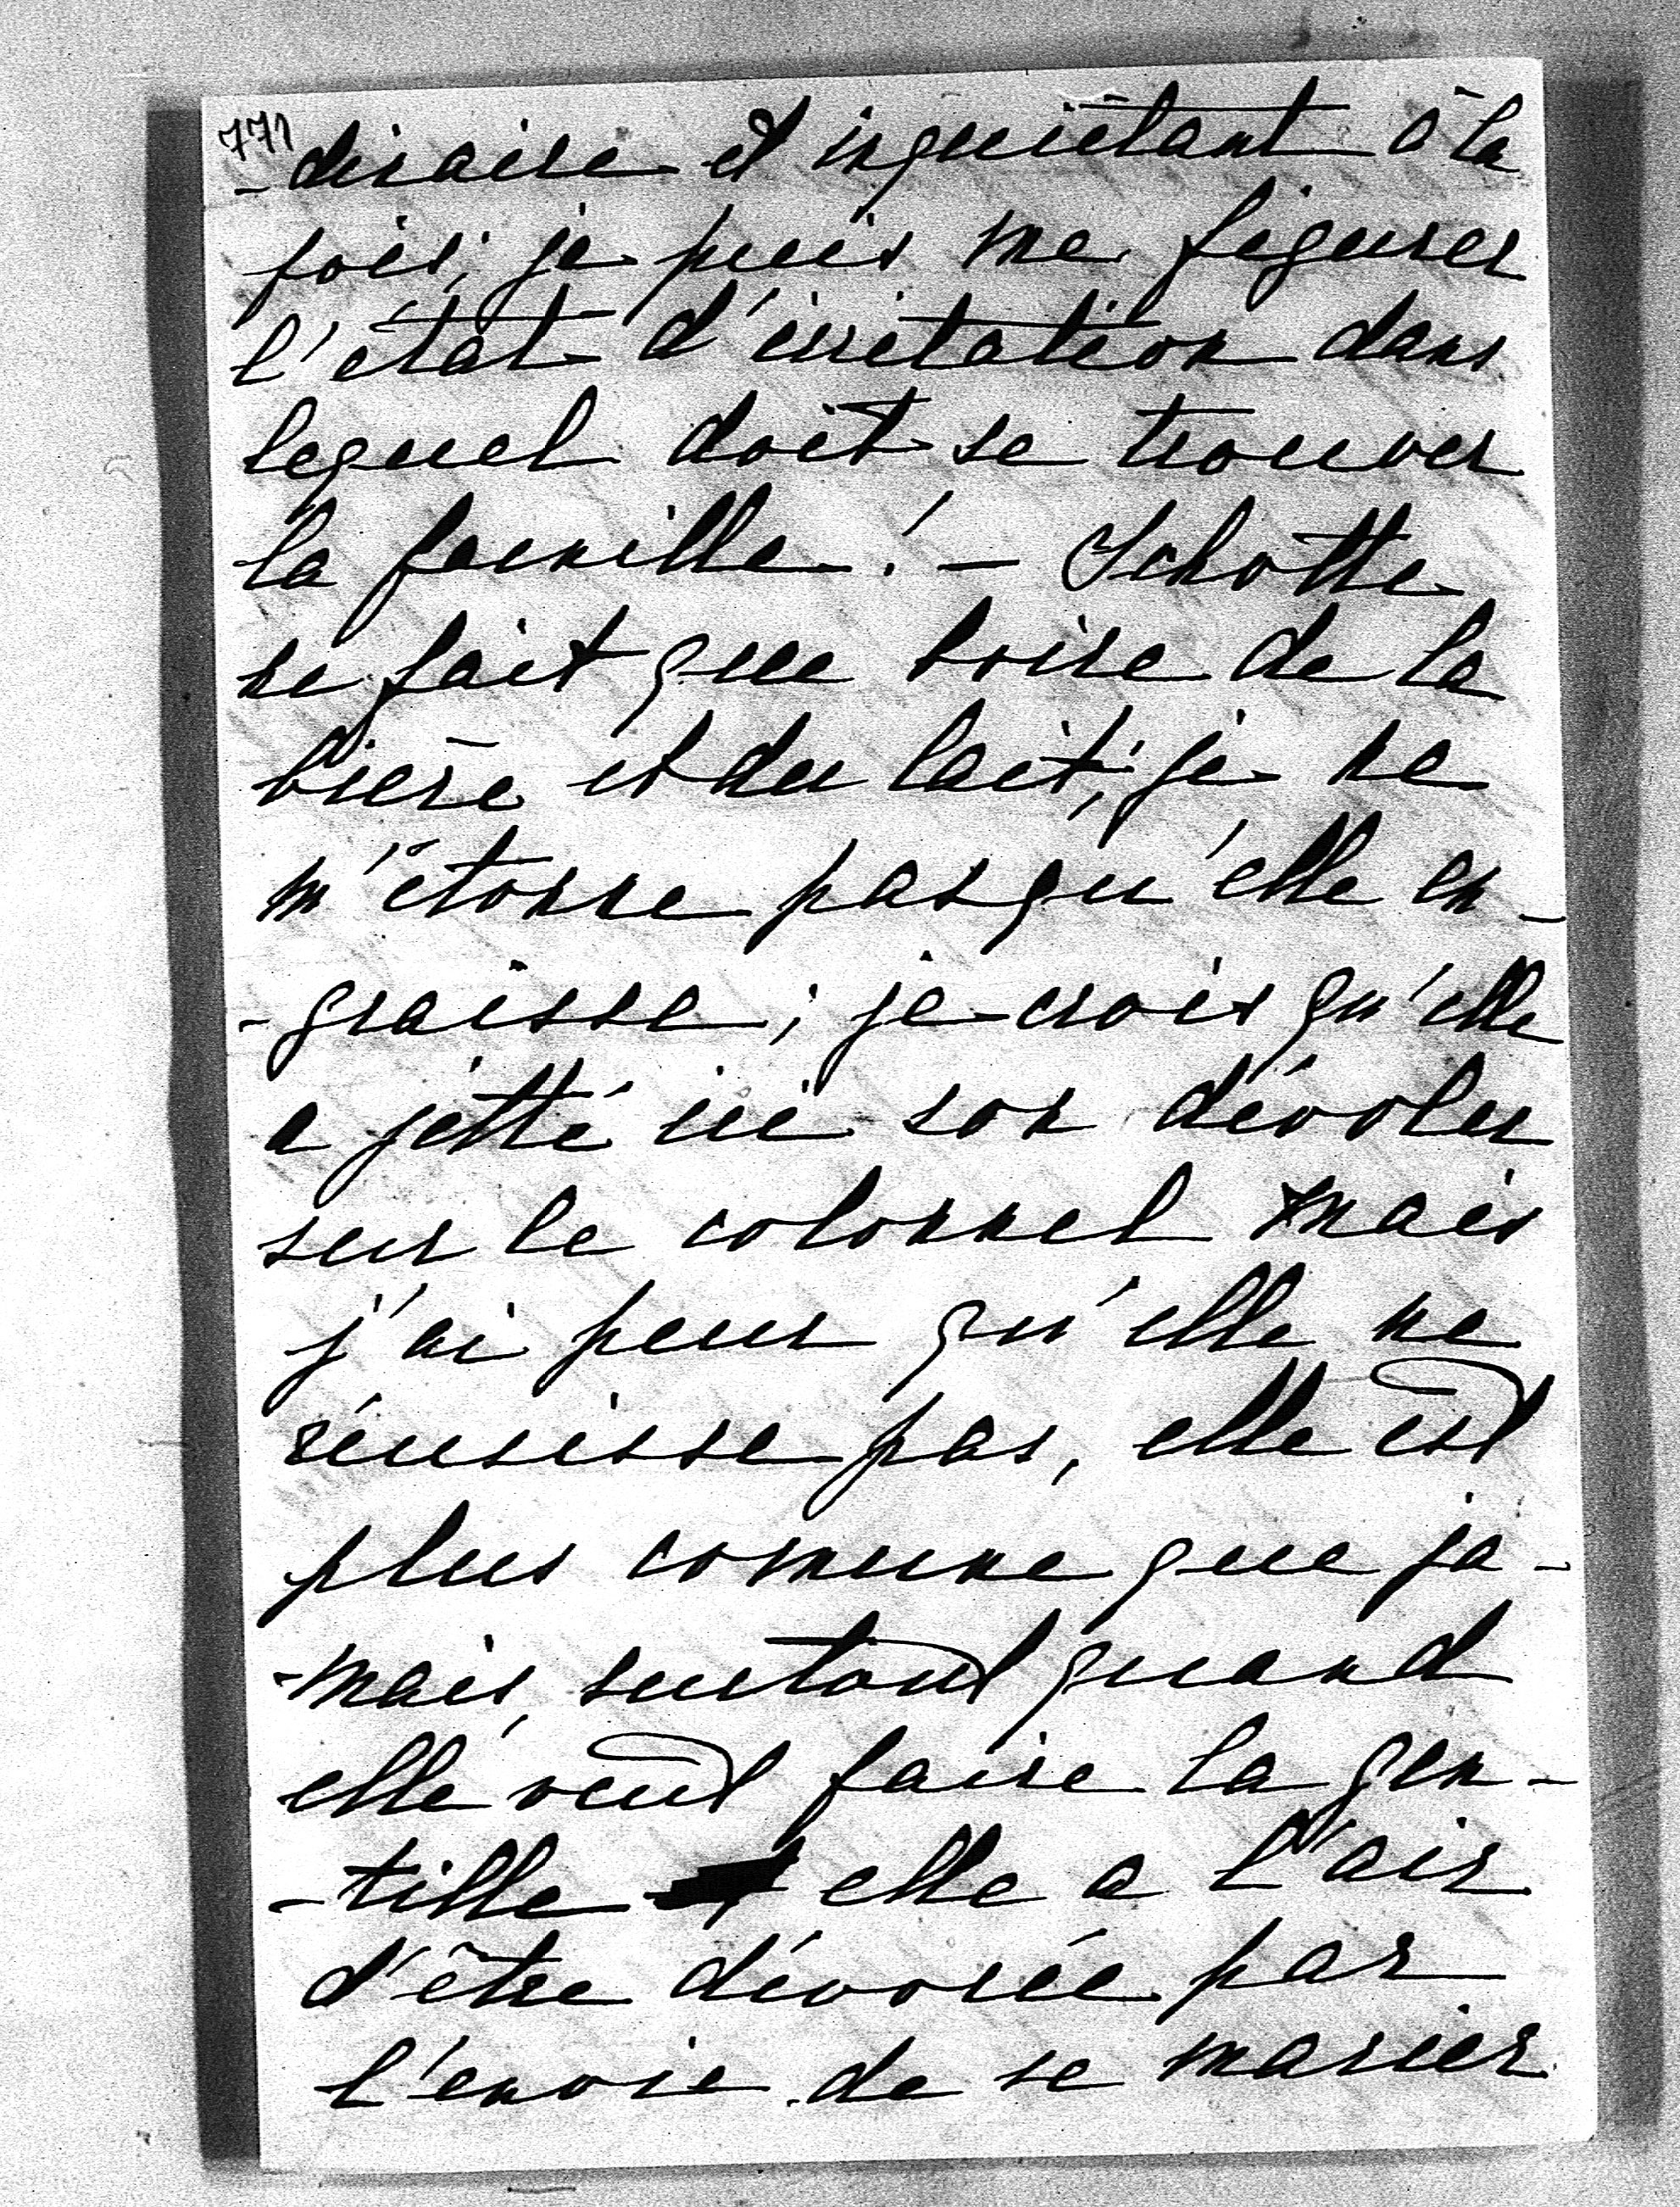 771
-diraire et inquiètant à la
fois; je puis me figurer
l'état d'irritation dans
lequel doit se trouver
la famille! - Schotte
ne fait que boire de la
bière et du lait; je ne
m'étonne pas qu'elle en-
-graisse; je crois qu'elle
a jetté ici son dévolu
sur le colonnel mais
j'ai peur qu'elle ne
réusisse pas, elle est
plus comune que ja-
-mais, surtout quand
elle veut faire la gen-
-tille elle a l'air
d'être dévorée par
l'envie de se marier